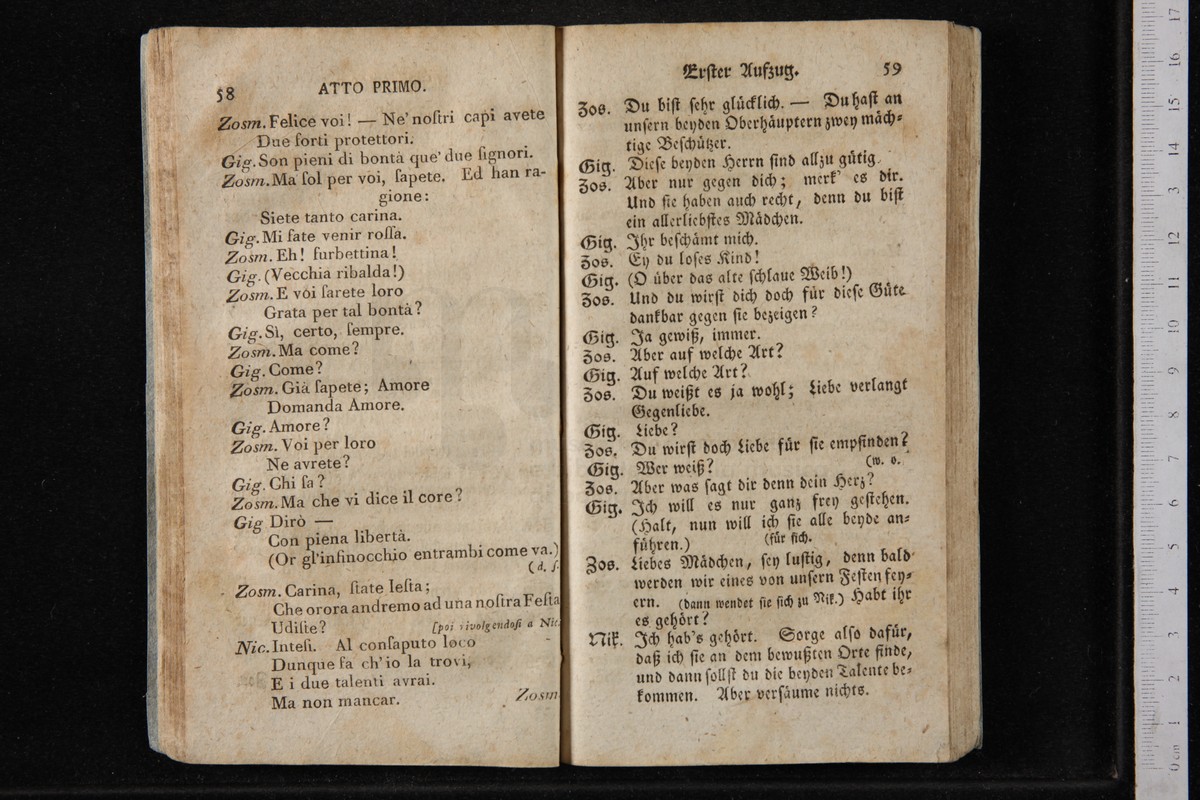 58 ATTO PRIMO.
Zosm. Felice voi! — Ne' noſtri capi avete
Due forti protettori.
Gig. Son pieni di bontà que' due ſignori.
Zosm. Ma ſol per voi, ſapete. Ed han ra-
gione:
Siete tanto carina.
Gig. Mi fate venir roſſa.
Zosm. Eh! furbettina!
Gig. (Vecchia ribalda!)
Zosm. E vói ſarete loro
Grata per tal bontà?
Gig. Sì, certo, ſempre.
Zosm. Ma come?
Gig. Come?
Zosm. Già ſapete; Amore
Domanda Amore.
Gig. Amore?
Zosm. Voi per loro
Ne avrete?
Gig. Chi ſa?
Zosm. Ma che vi dice il core?
Gig Dirò —
Con piena libertà.
(Or gl'infinocchio entrambi come va.)
(d. ſ.
Zosm. Carina, ſtate leſta;
Che orora andremo ad una noſtra Feſta
Udiſte? [poi rivolgendoſi a Nic.
Nic. Inteſi. Al conſaputo loco
Dunque fa ch'io la trovi,
E i due talenti avrai.
Ma non mancar. Zosm
Erſter Aufzug. 59
Zos. Du biſt ſehr glücklich. — Du haſt an
unſern beyden Oberhäuptern zwey mäch-
tige Beſchützer.
Gig. Dieſe beyden Herrn ſind allzu gütig.
Zos. Aber nur gegen dich; merk' es dir.
Und ſie haben auch recht, denn du biſt
ein allerliebſtes Mädchen.
Gig. Ihr beſchämt mich.
Zos. Ey du loſes Kind!
Gig. (O über das alte ſchlaue Weib!)
Zos. Und du wirſt dich doch für dieſe Güte
dankbar gegen ſie bezeigen?
Gig. Ja gewiß, immer.
Zos. Aber auf welche Art?
Gig. Auf welche Art?
Zos. Du weißt es ja wohl; Liebe verlangt
Gegenliebe.
Gig. Liebe?
Zos. Du wirſt doch Liebe für ſie empfinden?
Gig. Wer weiß? (w. o.
Zos. Aber was ſagt dir denn dein Herz?
Gig. Ich will es nur ganz frey geſtehen.
(Halt, nun will ich ſie alle beyde an-
führen.) (für ſich.
Zos. Liebes Mädchen, ſey luſtig, denn bald
werden wir eines von unſern Feſten fey-
ern. (dann wendet ſie ſich zu Nik.) Habt ihr
es gehört?
Nik. Ich hab's gehört. Sorge alſo dafür,
daß ich ſie an dem bewußten Orte finde,
und dann ſollſt du die beyden Talente be-
kommen. Aber verſäume nichts.
17
16
15
14
13
12
11
10
9
8
7
6
5
4
3
2
1
0 cm